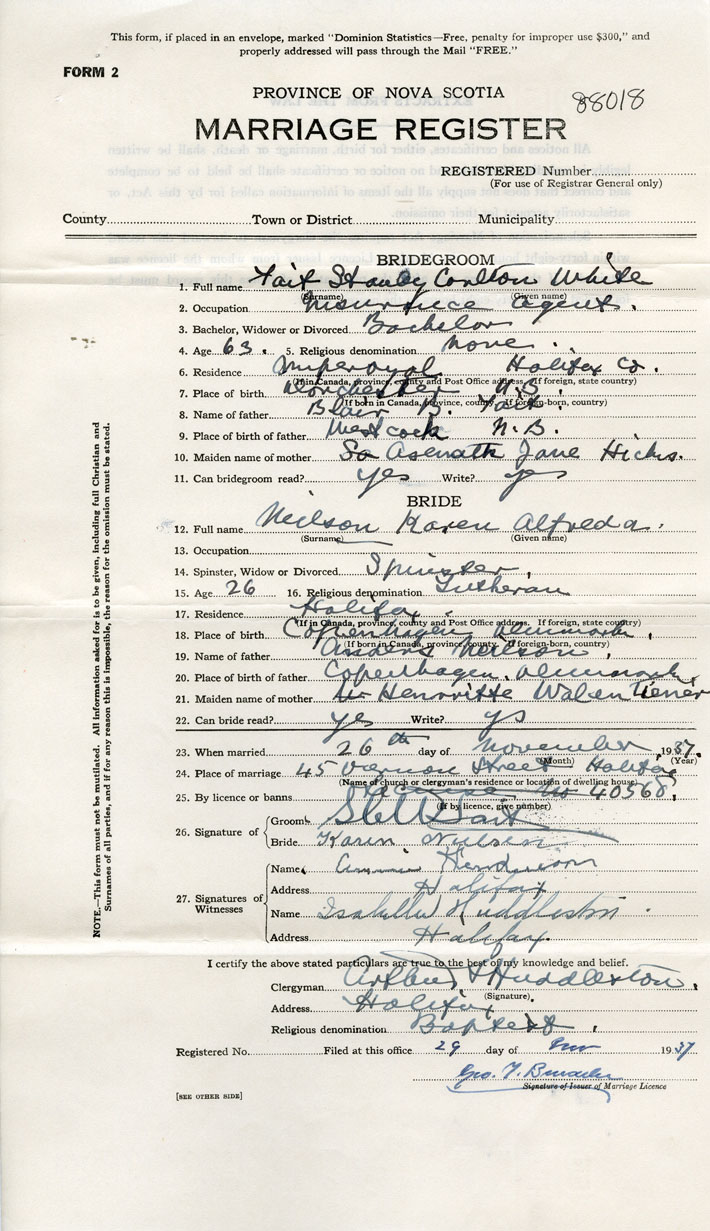 This form, if placed in an envelope, marked "Dominion Statistics—Free, penalty for improper use $300," and
properly addressed will pass through the Mail "FREE."
FORM 2
PROVINCE OF NOVA SCOTIA
88018
MARRIAGE REGISTER
REGISTERED Number
(For use of Registrar General only)
County Town or District Municipality
BRIDEGROOM
1. Full name Tait Stanley Carlton White
(Surname) (Given name)
2. Occupation Insurance Agent.
3. Bachelor, Widower or Divorced Bachelor
4. Age 63. 5. Religious denomination None.
6. Residence Imperoyal Halifax Co.
(If in Canada, province, county and Post Office address. If foreign, state country)
7. Place of birth Dorchester N.B.
(If born in Canada, province, county. If foreign-born, country)
8. Name of father Blair B. Tait.
9. Place of birth of father Westcock N.B.
10. Maiden name of mother Asenath Jane Hicks.
11. Can bridegroom read? yes Write? yes
BRIDE
12. Full name Neilson Karen Alfreda.
(Surname) (Given name)
13. Occupation
14. Spinster, Widow or Divorced Spinster,
15. Age 26 16. Religious denomination Lutheran
17. Residence Halifax
(If in Canada, province, county and Post Office address. If foreign, state country)
18. Place of birth Copenhagen Denmark,
(If born in Canada, province, county. If foreign-born, country)
19. Name of father Anders Neilson,
20. Place of birth of father Copenhagen, Denmark,
21. Maiden name of mother Henrvitte
22. Can bride read? yes Write? ys
23. When married 26th day of November 1937.
(Month) (Year)
24. Place of marriage 45 Vernon Street Halifax
(Name of church or clergyman's residence or location of dwelling house)
25. By licence or banns License No 40568,
(If by licence, give number)
26. Signature of Groom Tait
Bride Karen Nielsen
27. Signatures of Witnesses
Name Henderson
Address Halifax
Name Isabella Huddleston.
Address Halifax.
I certify the above stated particulars are true to the best of my knowledge and belief.
Clergyman Arthur Huddleston,
(Signature)
Address Halifax,
Religious denomination Baptist,
Registered No. Filed at this office 29 day of Nov 1937
Geo. T.
Signature of Issuer of Marriage Licence
[SEE OTHER SIDE]
NOTE.—This form must not be mutilated. All information asked for is to be given, including full Christian and
Surnames of all parties, and if for any reason this is impossible, the reason for the omission must be stated.